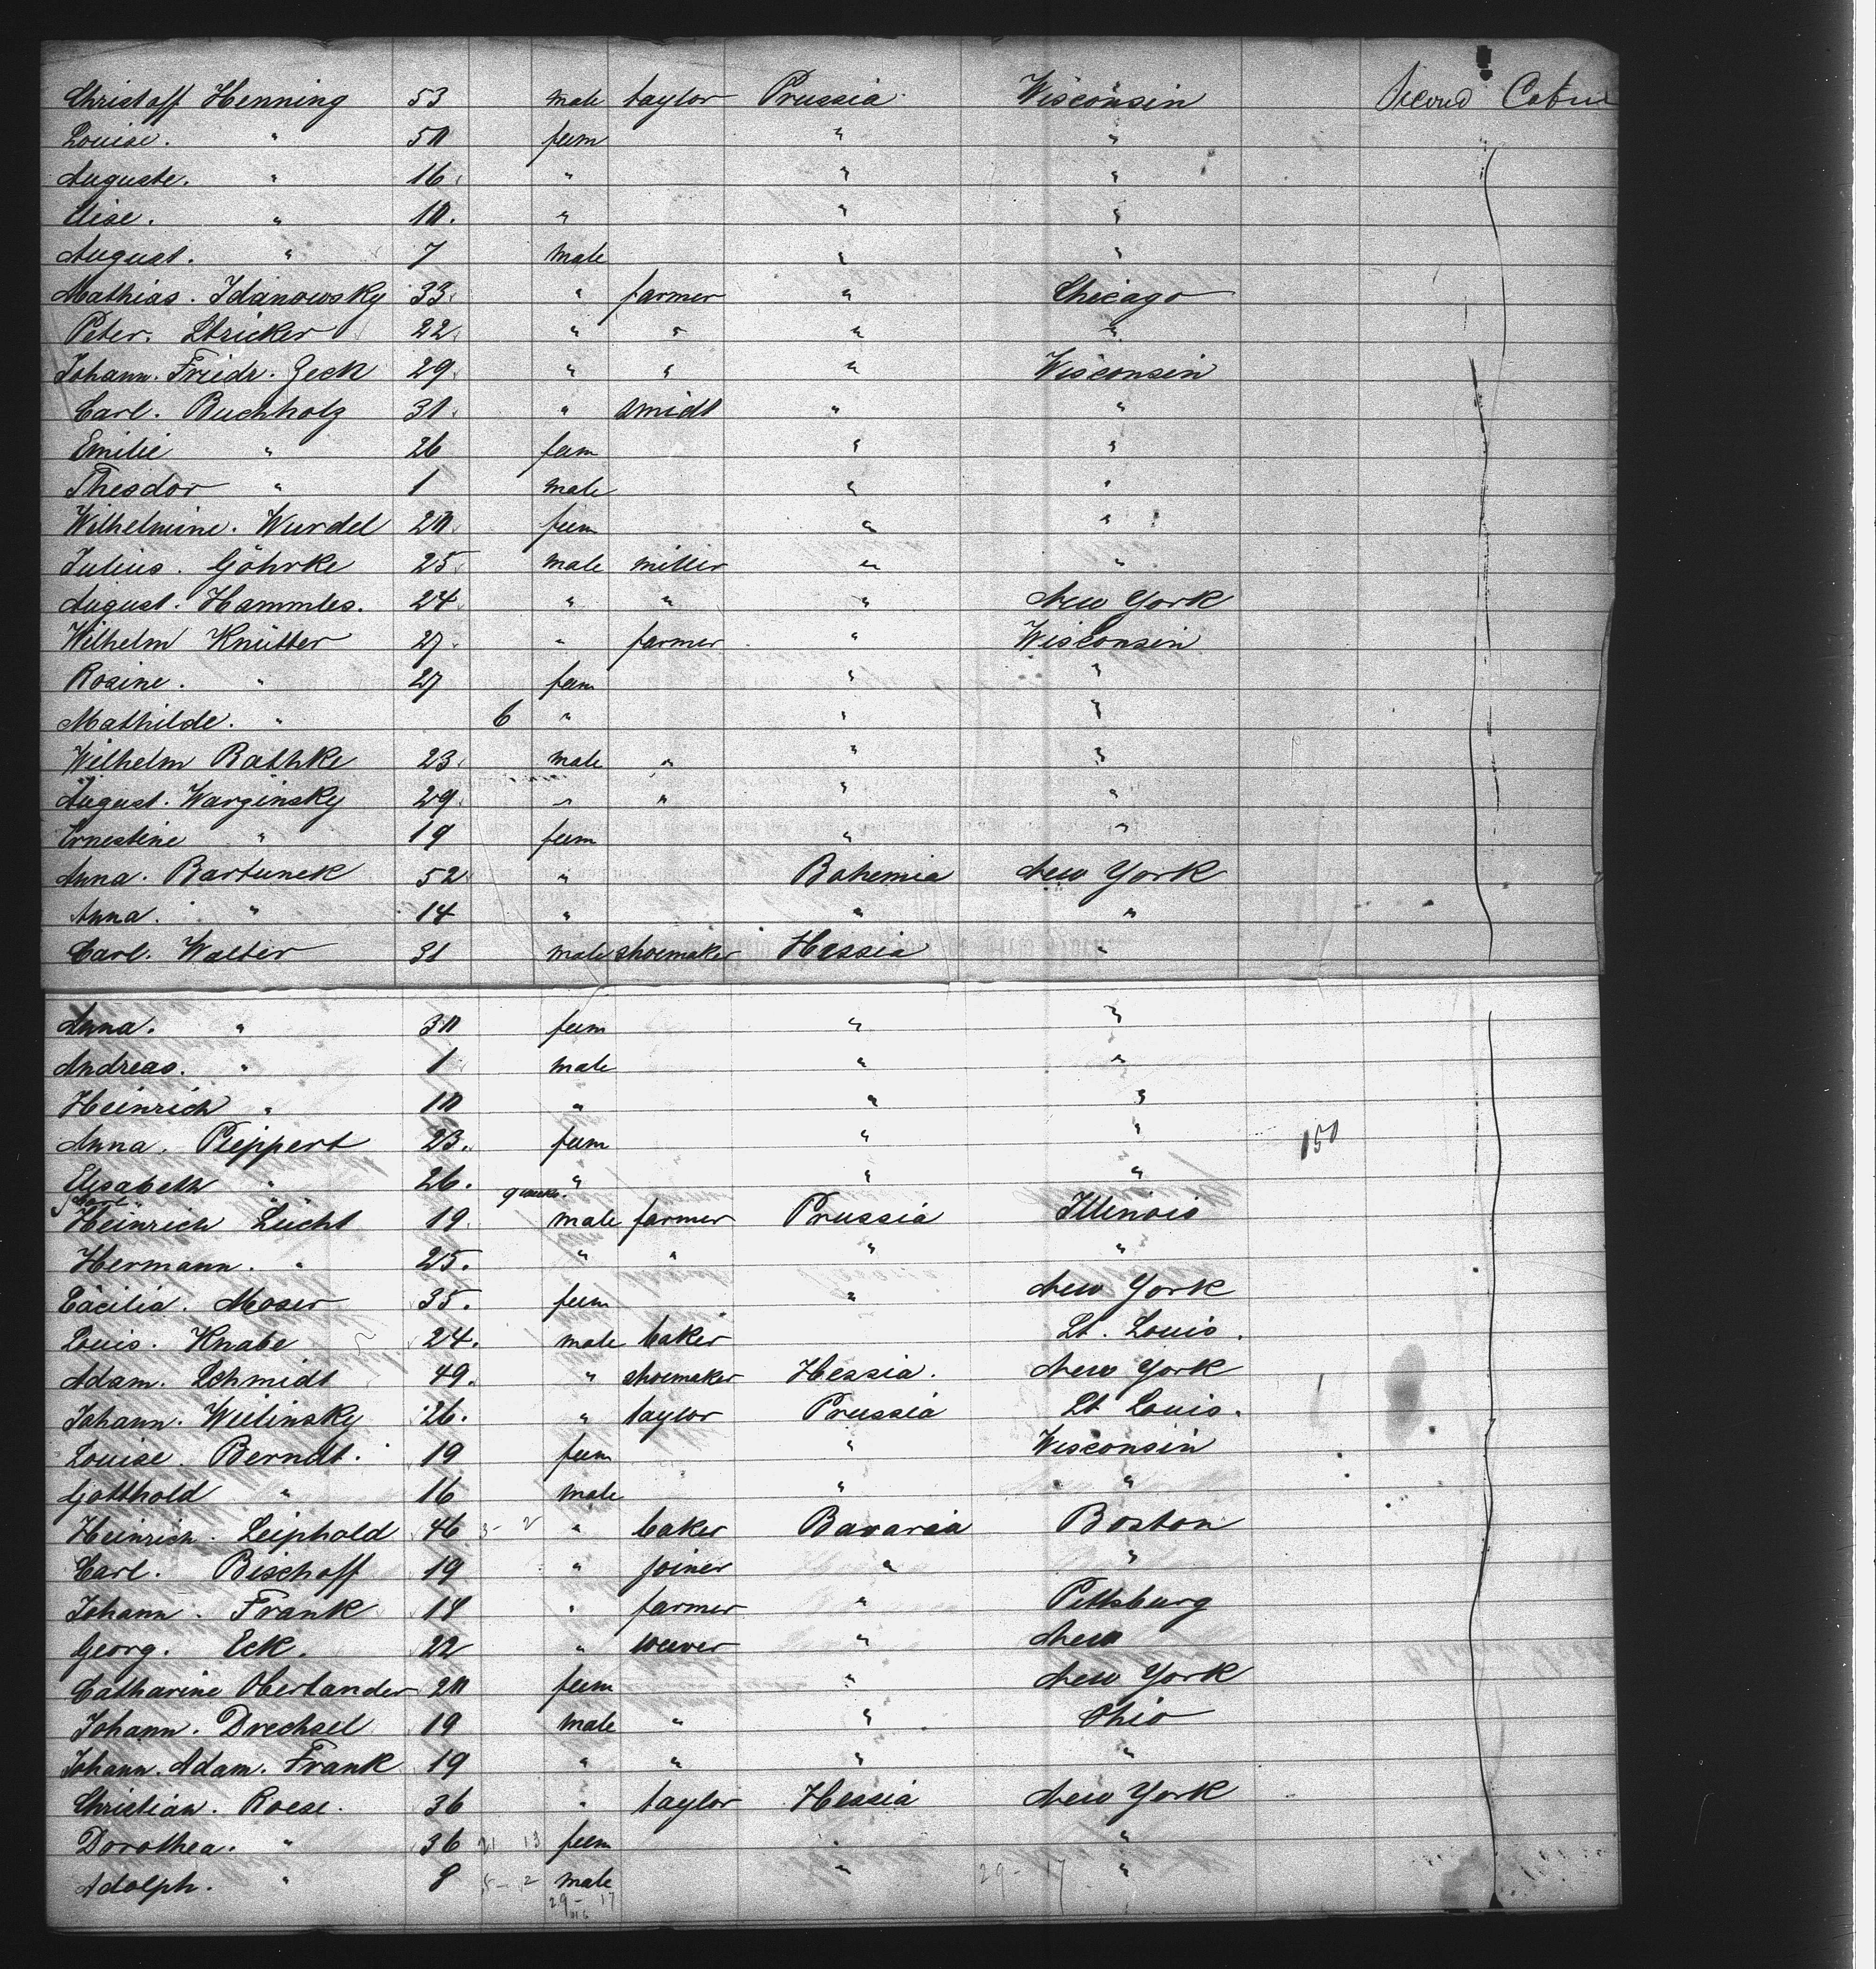 Christoff Henning 53 male taylor Prussia Wisconsin Second Cabin
Louise. " 50 fem " "
Auguste. " 16. " " "
Elise. " 10. " " "
August. " 7 male " "
Mathias. Idanowsky 33. " farmer " Chicago
Peter. Stricker 22. " " " "
Johann. Friedr. Geck 29. " " " Wisconsin
Carl. Buchholz 31. " smidt " "
Emilie " 26 fem " "
Theodor " 1 male " "
Wilhelmine. Wurdel 20. fem " "
Julius. Göhrke 25. male miller " "
August. Hammles. 24. " " " New York
Wilhelm Knütter 27. " farmer " Wisconsin
Rosine. " 27 fem " "
Mathilde. " 6 " " "
Wilhelm Rathke 23. male " " "
August. Warginsky 29. " " " "
Ernestine " 19 fem " "
Anna. Bartunek 52 " Bohemia New York
Anna. " 14 " " "
Carl. Walter 31 male shoemaker Hessia "
Anna. " 30 fem " "
Andreas. " 1 male " "
Heinrich " 10 " " "
Anna. Pieppert 23. fem " " 150
Elisabeth " 26. " " "
Heinrich Lücht 19. male farmer Prussia Illinois
Hermann. " 25. " " " "
Cäcilia. Moser 35. fem " New York
Louis. Knabe 24. male baker St. Louis.
Adam. Schmidt 49. " shoemaker Hessia. New York
Johann. Wielinsky 26. " taylor Prussia St Louis.
Louise. Berndt. 19 fem " Wisconsin
Gotthold " 16 male " "
Heinrich. Leiphold 46 " baker Bavaria Boston
Carl. Bischoff 19 " joiner " "
Johann. Frank 18 " farmer " Pittsburg
Georg. Eck. 22 " weever " New
Catharine Oberlander 20 fem " New York
Johann. Drechsel 19 male " " Ohio
Johann. Adam. Frank 19 " " " "
Christian. Roese. 36 " taylor Hessia New York
Dorothea. " 36 21 13 fem " "
Adolph. " 8 5- 2 male " 29- 17 "
29- 17